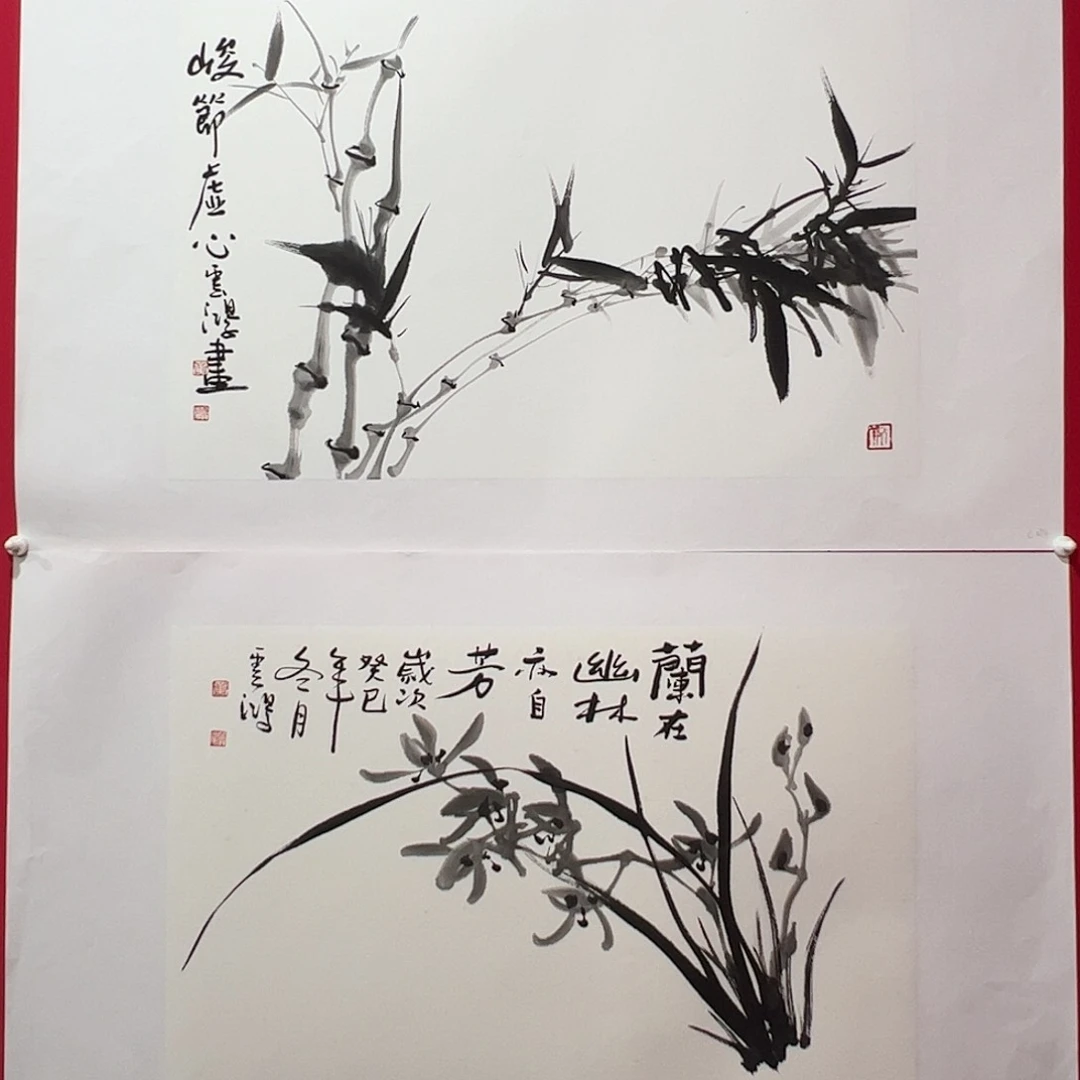 峻節虛心雲鴻畫
蘭在
幽林
亦自
芳
歲次
癸巳
年
冬月
雲鴻